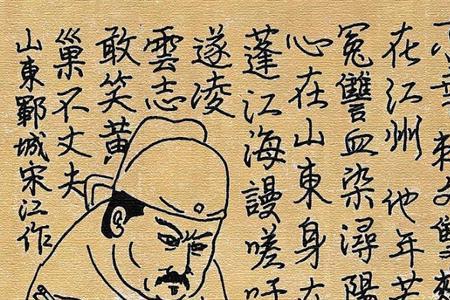 刺文雙
在江州他年若
冤讐血染潯陽
心在山東身在
蓬江海謾嗟吁
遂凌
雲志
敢笑黃
巢不丈夫
山東鄆城宋江作